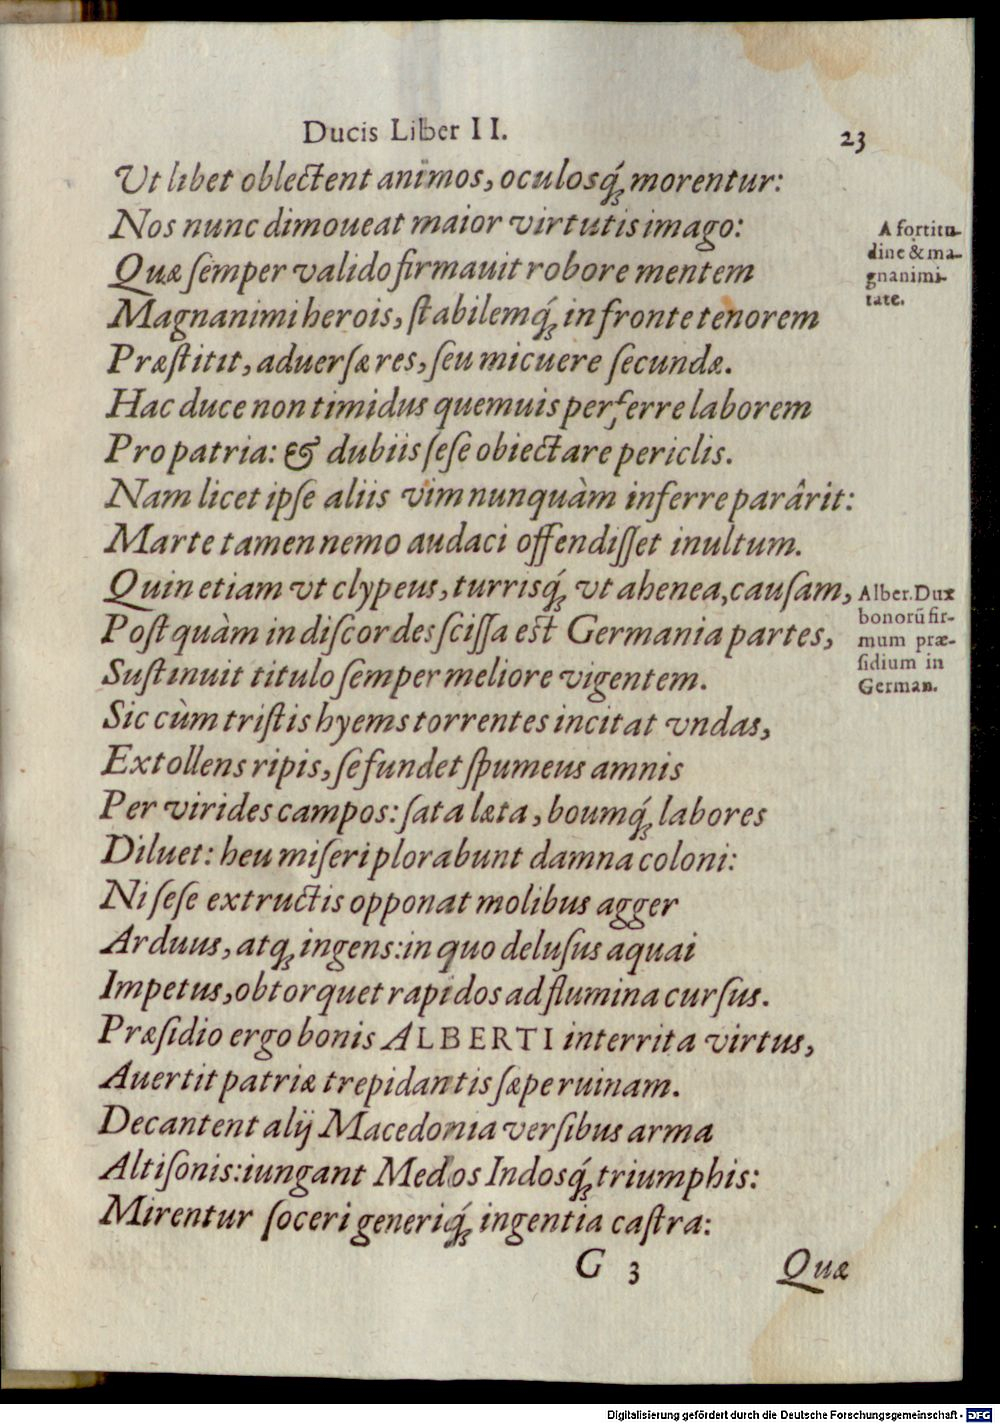 Ducis Liber II. 23
Ut libet oblectent animos, oculosq́; morentur:
Nos nunc dimoueat maior virtutis imago:
Quæ ſemper valido firmauit robore mentem
Magnanimi herois, ſtabilemq́; in fronte tenorem
Præſtitit, aduerſæ res, ſeu micuere ſecundæ.
Hac duce non timidus quemuis perferre laborem
Pro patria: & dubiis ſeſe obiectare periclis.
Nam licet ipſe aliis vim nunquàm inferre parârit:
Marte tamen nemo audaci offendiſſet inultum.
Quin etiam vt clypeus, turrisq́; vt ahenea, cauſam,
Poſtquàm in diſcordes ſciſſa eſt Germania partes,
Suſtinuit titulo ſemper meliore vigentem.
Sic cùm triſtis hyems torrentes incitat vndas,
Extollens ripis, ſe fundet ſpumeus amnis
Per virides campos: ſata læta, boumq́; labores
Diluet: heu miſeri plorabunt damna coloni:
Ni ſeſe extructis opponat molibus agger
Arduus, atq; ingens: in quo deluſus aquai
Impetus, obtorquet rapidos ad flumina curſus.
Præſidio ergo bonis ALBERTI interrita virtus,
Auertit patriæ trepidantis ſæpe ruinam.
Decantent alij Macedonia verſibus arma
Altiſonis: iungant Medos Indosq́; triumphis:
Mirentur ſoceri generiq́; ingentia caſtra:
G 3 Quæ
A fortitu-
dine & ma-
gnanimi-
tate.
Alber. Dux
bonorū fir-
mum præ-
ſidium in
German.
Digitalisierung gefördert durch die Deutsche Forschungsgemeinschaft - DFG